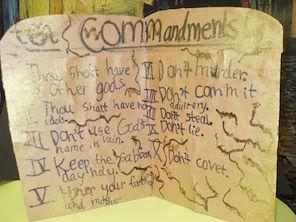 ten Commandments
I Thou shalt have
other gods.
II Thou shalt have no
idols.
III Don't Use God's
name in vain.
IV Keep the Sabbath
day holy.
V Honer your father
and mother
VI Don't murder.
VII Don't commit
adultery.
VIII Don't steal.
IX Don't lie.
X Don't covet.